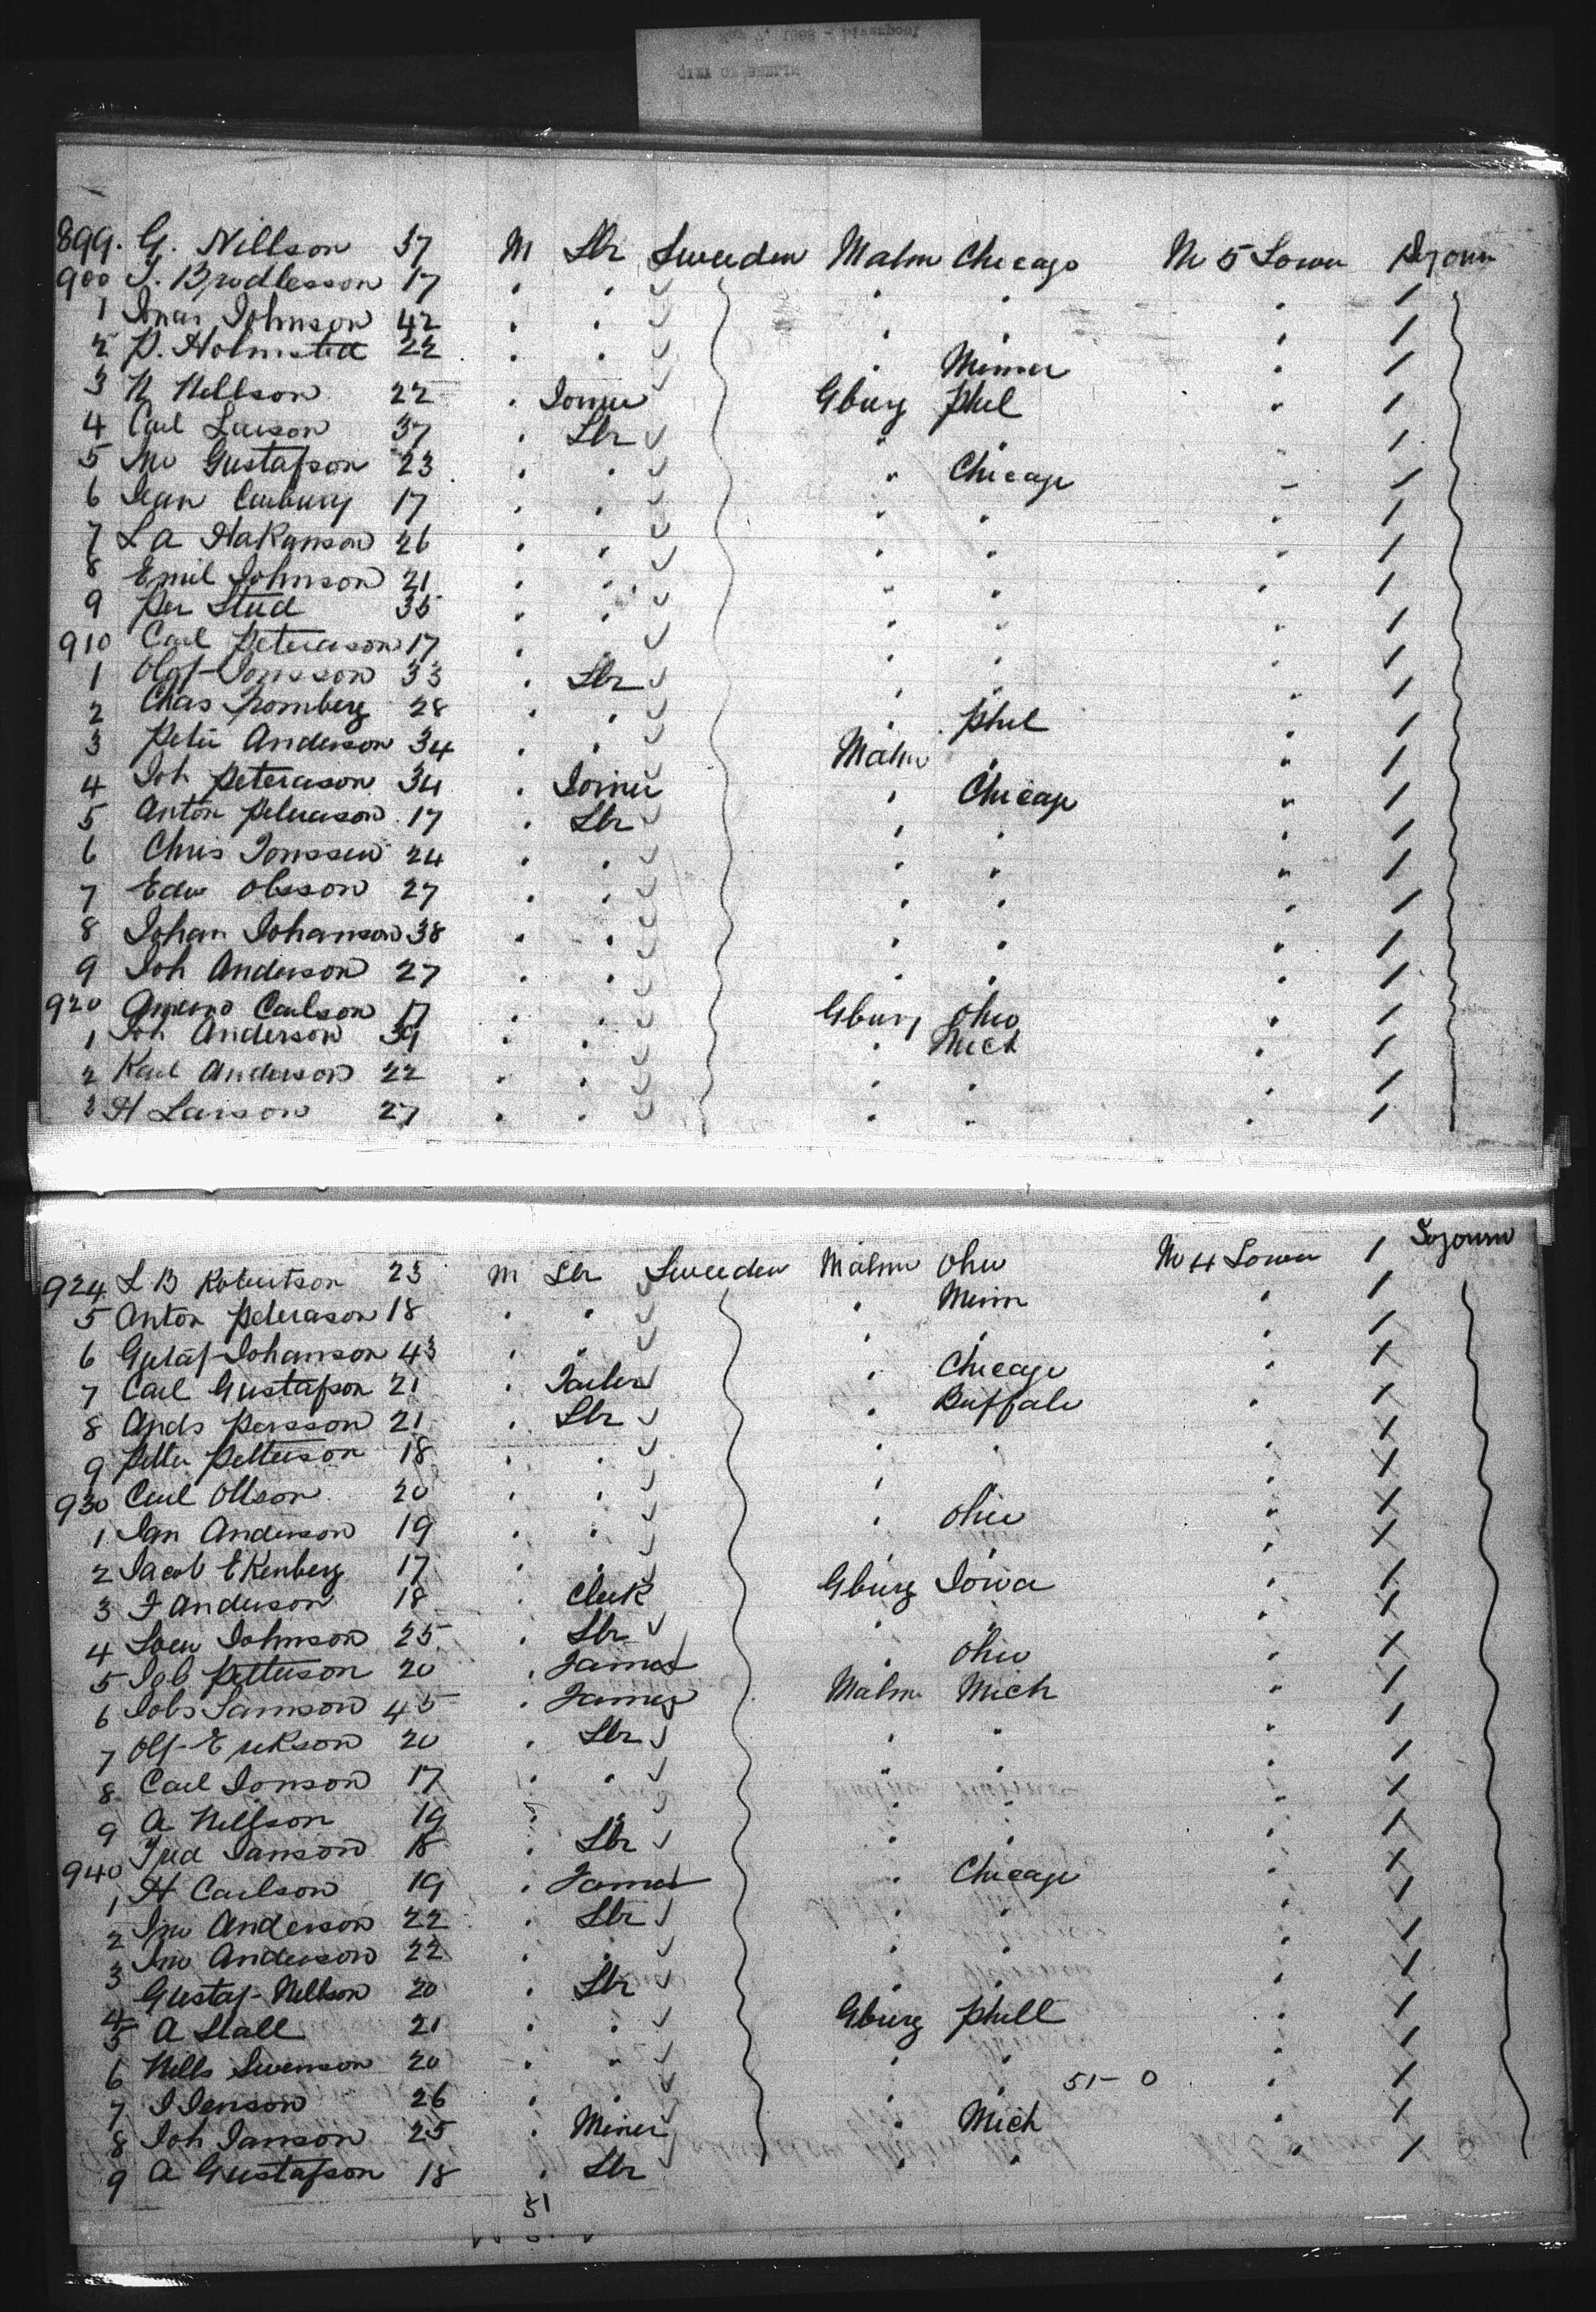 899. G. Nillson 37 M Lbr Sweeden Malm Chicago No 5 Lower Sojourn
900 17 " " " " " 1
1 Jonas Johnson 42 " " " " " 1
2 P. Holmsted 22 " " " Minner " 1
3 N Nellson 22 " Joiner Gburg Phil " 1
4 Carl Larson 37 " Lbr " " " 1
5 Jno Gustafson 23 " " " Chicago " 1
6 17 " " " " " 1
7 L A Hakanson 26 " " " " " 1
8 Emil Johnson 21 " " " " " 1
9 Per Stud 35 " " " " " 1
910 Carl Peterason 17 " " " " " 1
1 Olof Jonsson 33 " Lbr " " " 1
2 Chas 28 " " " Phil " 1
3 Peter Anderson 34 " " Malm " " 1
4 Joh Peterason 34 " Joiner " Chicago " 1
5 Anton Peterason 17 " Lbr " " " 1
6 Chris Jonssen 24 " " " " " 1
7 Edw Olsson 27 " " " " " 1
8 Johan Johanson 38 " " " " " 1
9 Joh Anderson 27 " " " " " 1
920 Carlson 17 " " Gburg Ohio " 1
1 Joh Anderson 39 " " " Mich " 1
2 Karl Anderson 22 " " " " " 1
3 H Larson 27 " " " " " 1
924 L B Robertson 23 M Lbr Sweeden Malm Ohio No 4 Lower 1 Sojourn
5 Anton Peterason 18 " " " Minn " 1
6 Gustaf Johanson 43 " " " " " 1
7 Carl Gustafson 21 " Tailor " Chicago " 1
8 Ands Persson 21 " Lbr " Buffalo " 1
9 Petter Petterson 18 " " " " " 1
930 Carl Ollson 20 " " " " " 1
1 Jan Anderson 19 " " " Ohio " 1
2 Jacob Ekenberg 17 " " " " " 1
3 J Anderson 18 " Clerk Gburg Iowa " 1
4 Johnson 25 " Lbr " " " 1
5 Petterson 20 " Farmer " Ohio " 1
6 Samson 45 " Farmer Malm Mich " 1
7 Olf Erikson 20 " Lbr " " " 1
8 Carl Jonson 17 " " " " " 1
9 A Nellson 19 " " " " " 1
940 Fred Janson 18 " Lbr " " " 1
1 H Carlson 19 " Farmer " Chicago " 1
2 Jno Anderson 22 " Lbr " " " 1
3 Jno Anderson 22 " " " " " 1
4 Gustaf Nellson 20 " Lbr " " " 1
5 A Stall 21 " " Gburg Phill " 1
6 Nells Swenson 20 " " " " " 1
7 J Jenson 26 " " " " 51 - 0 " 1
8 Joh Janson 25 " Miner " Mich " 1
9 A Gustafson 18 " Lbr " " " 1
51